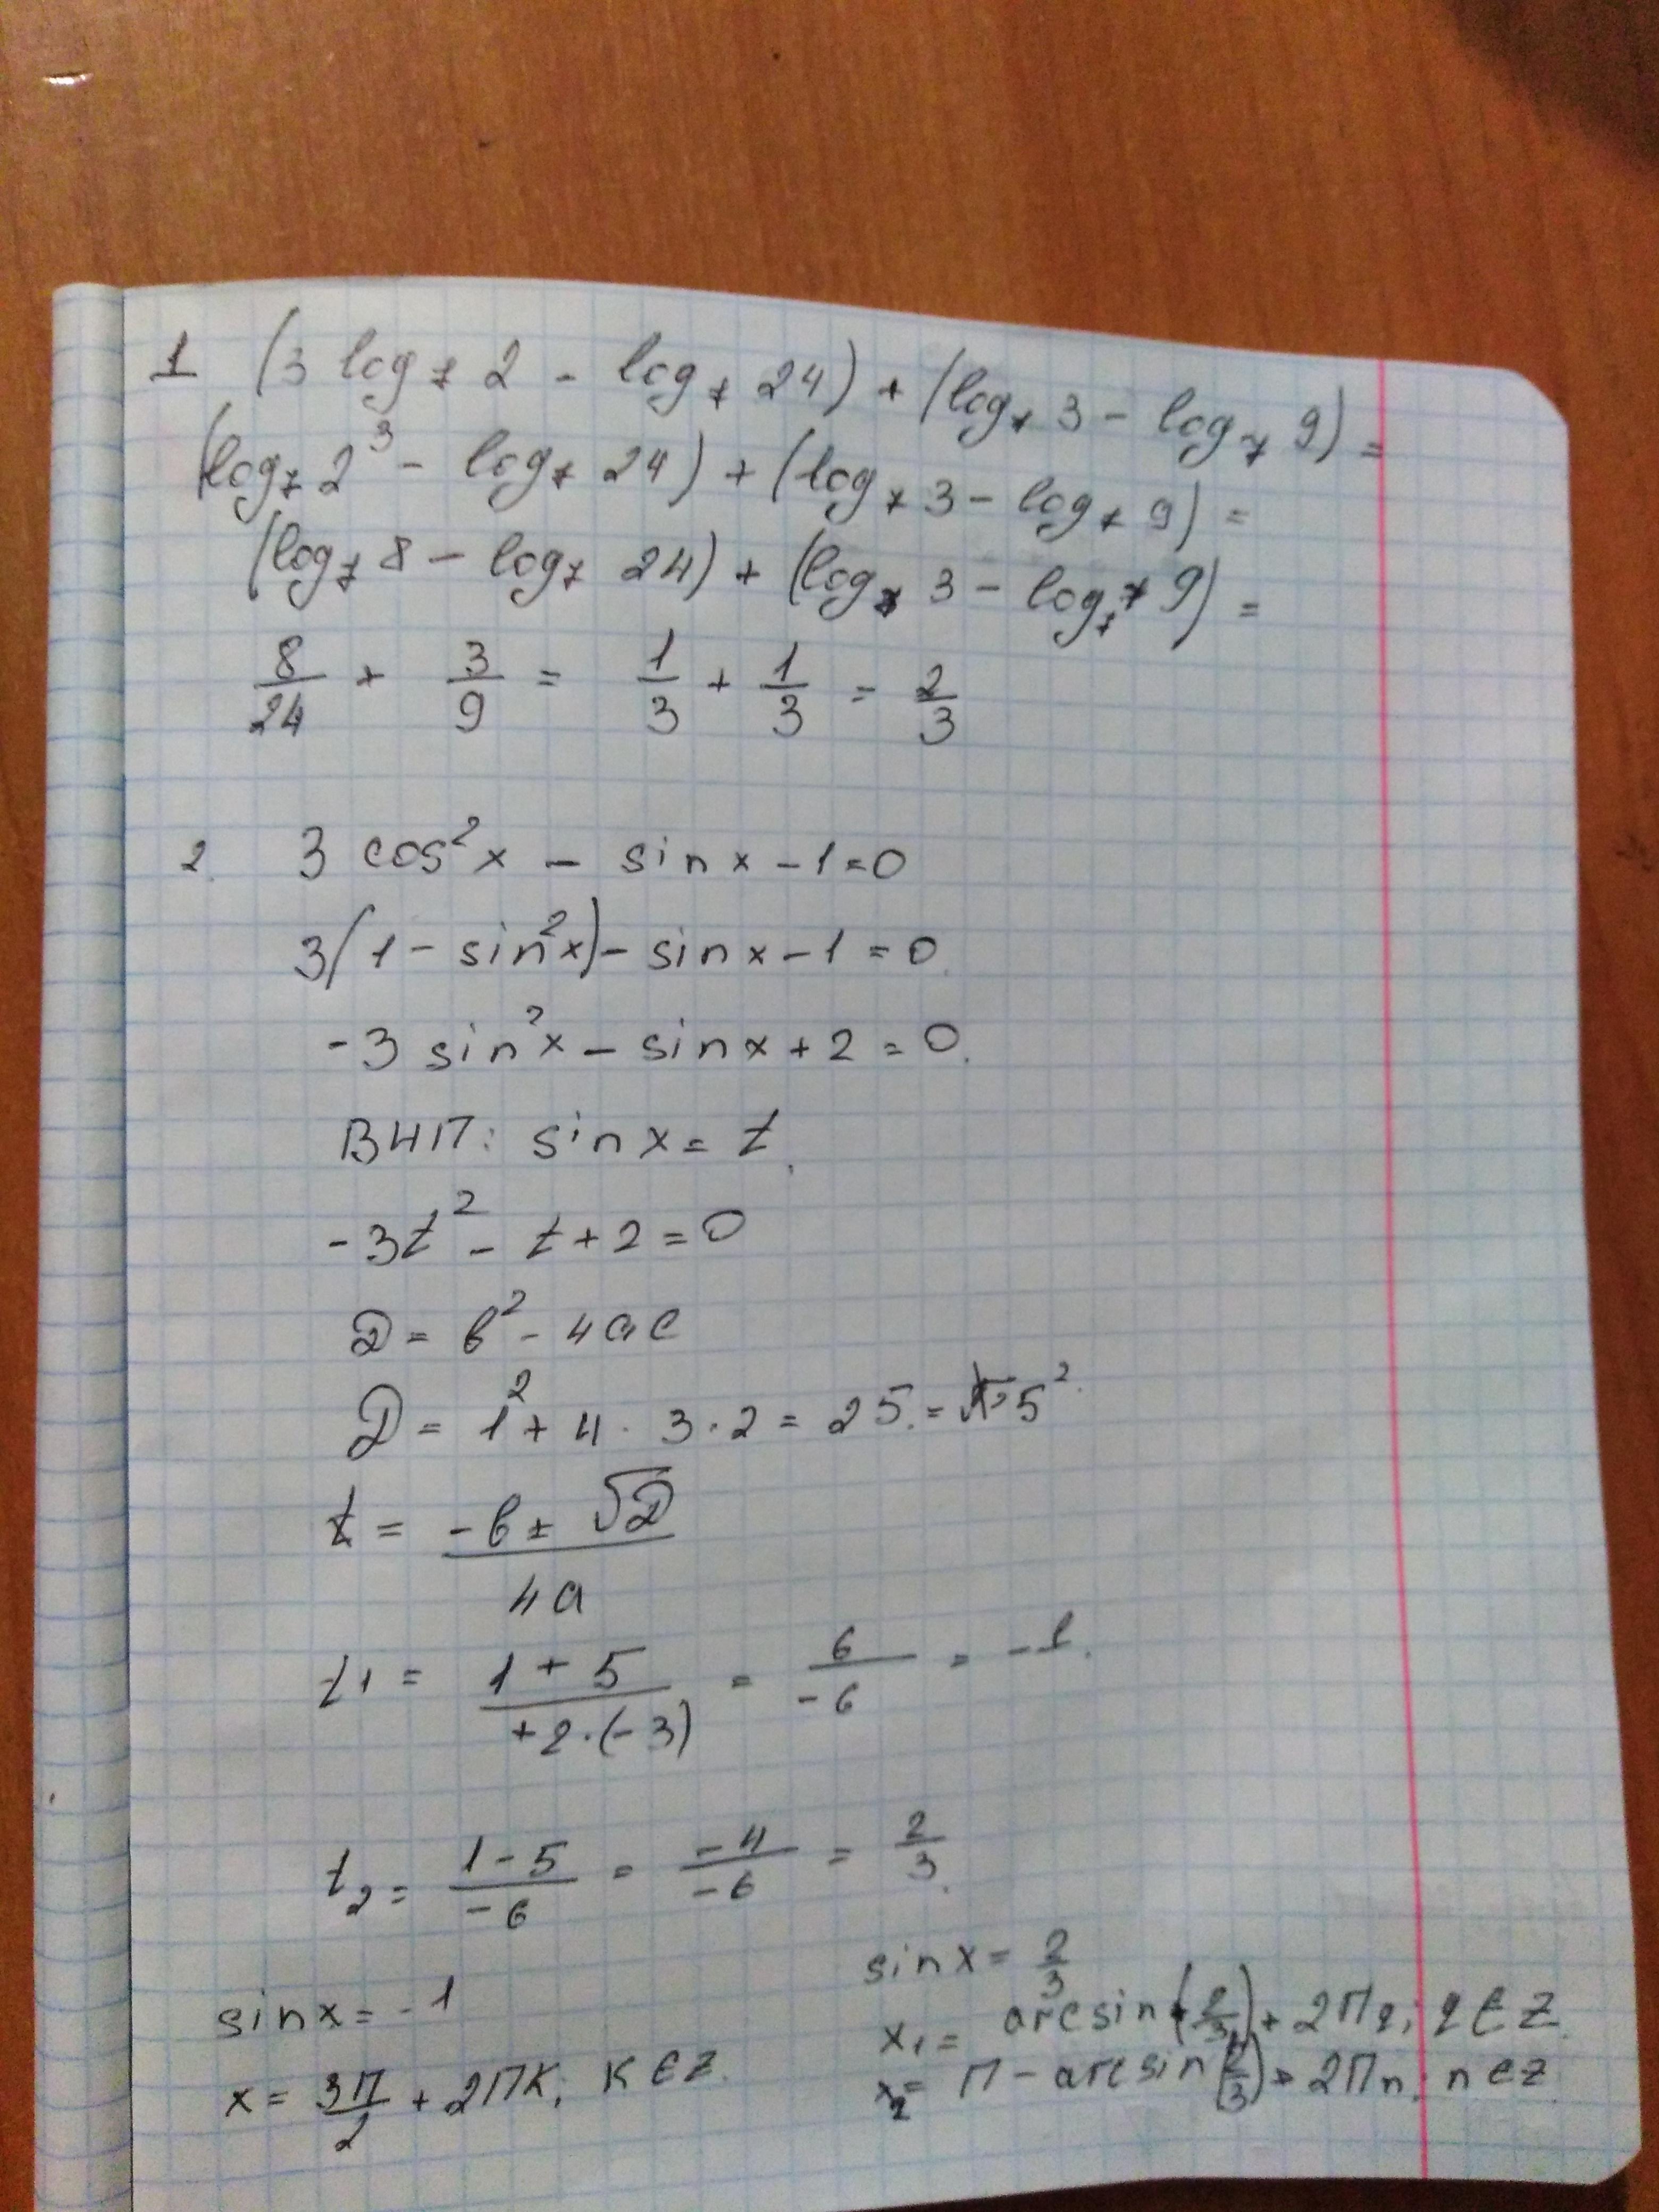 1 (3 log₇ 2 - log₇ 24) + (log₇ 3 - log₇ 9) =
(log₇ 2³ - log₇ 24) + (log₇ 3 - log₇ 9) =
(log₇ 8 - log₇ 24) + (log₇ 3 - log₇ 9) =
8/24 + 3/9 = 1/3 + 1/3 = 2/3
2. 3 cos²x - sin x - 1 = 0
3(1 - sin²x) - sin x - 1 = 0
-3 sin²x - sin x + 2 = 0.
ВНП: sin x = t
-3t² - t + 2 = 0
D = b² - 4ac
D = 1² + 4 · 3 · 2 = 25 = 5²
t = (-b ± √D)/4a
t1 = (1 + 5)/(+2·(-3)) = 6/-6 = -1.
t₂ = (1 - 5)/-6 = -4/-6 = 2/3.
sin x = -1
x = 3П/2 + 2Пк; к ∈ Z.
sin x = 2/3
x₁ = arcsin(2/3) + 2Пq; q ∈ Z.
x₂ = П - arcsin(2/3) + 2Пn; n ∈ Z